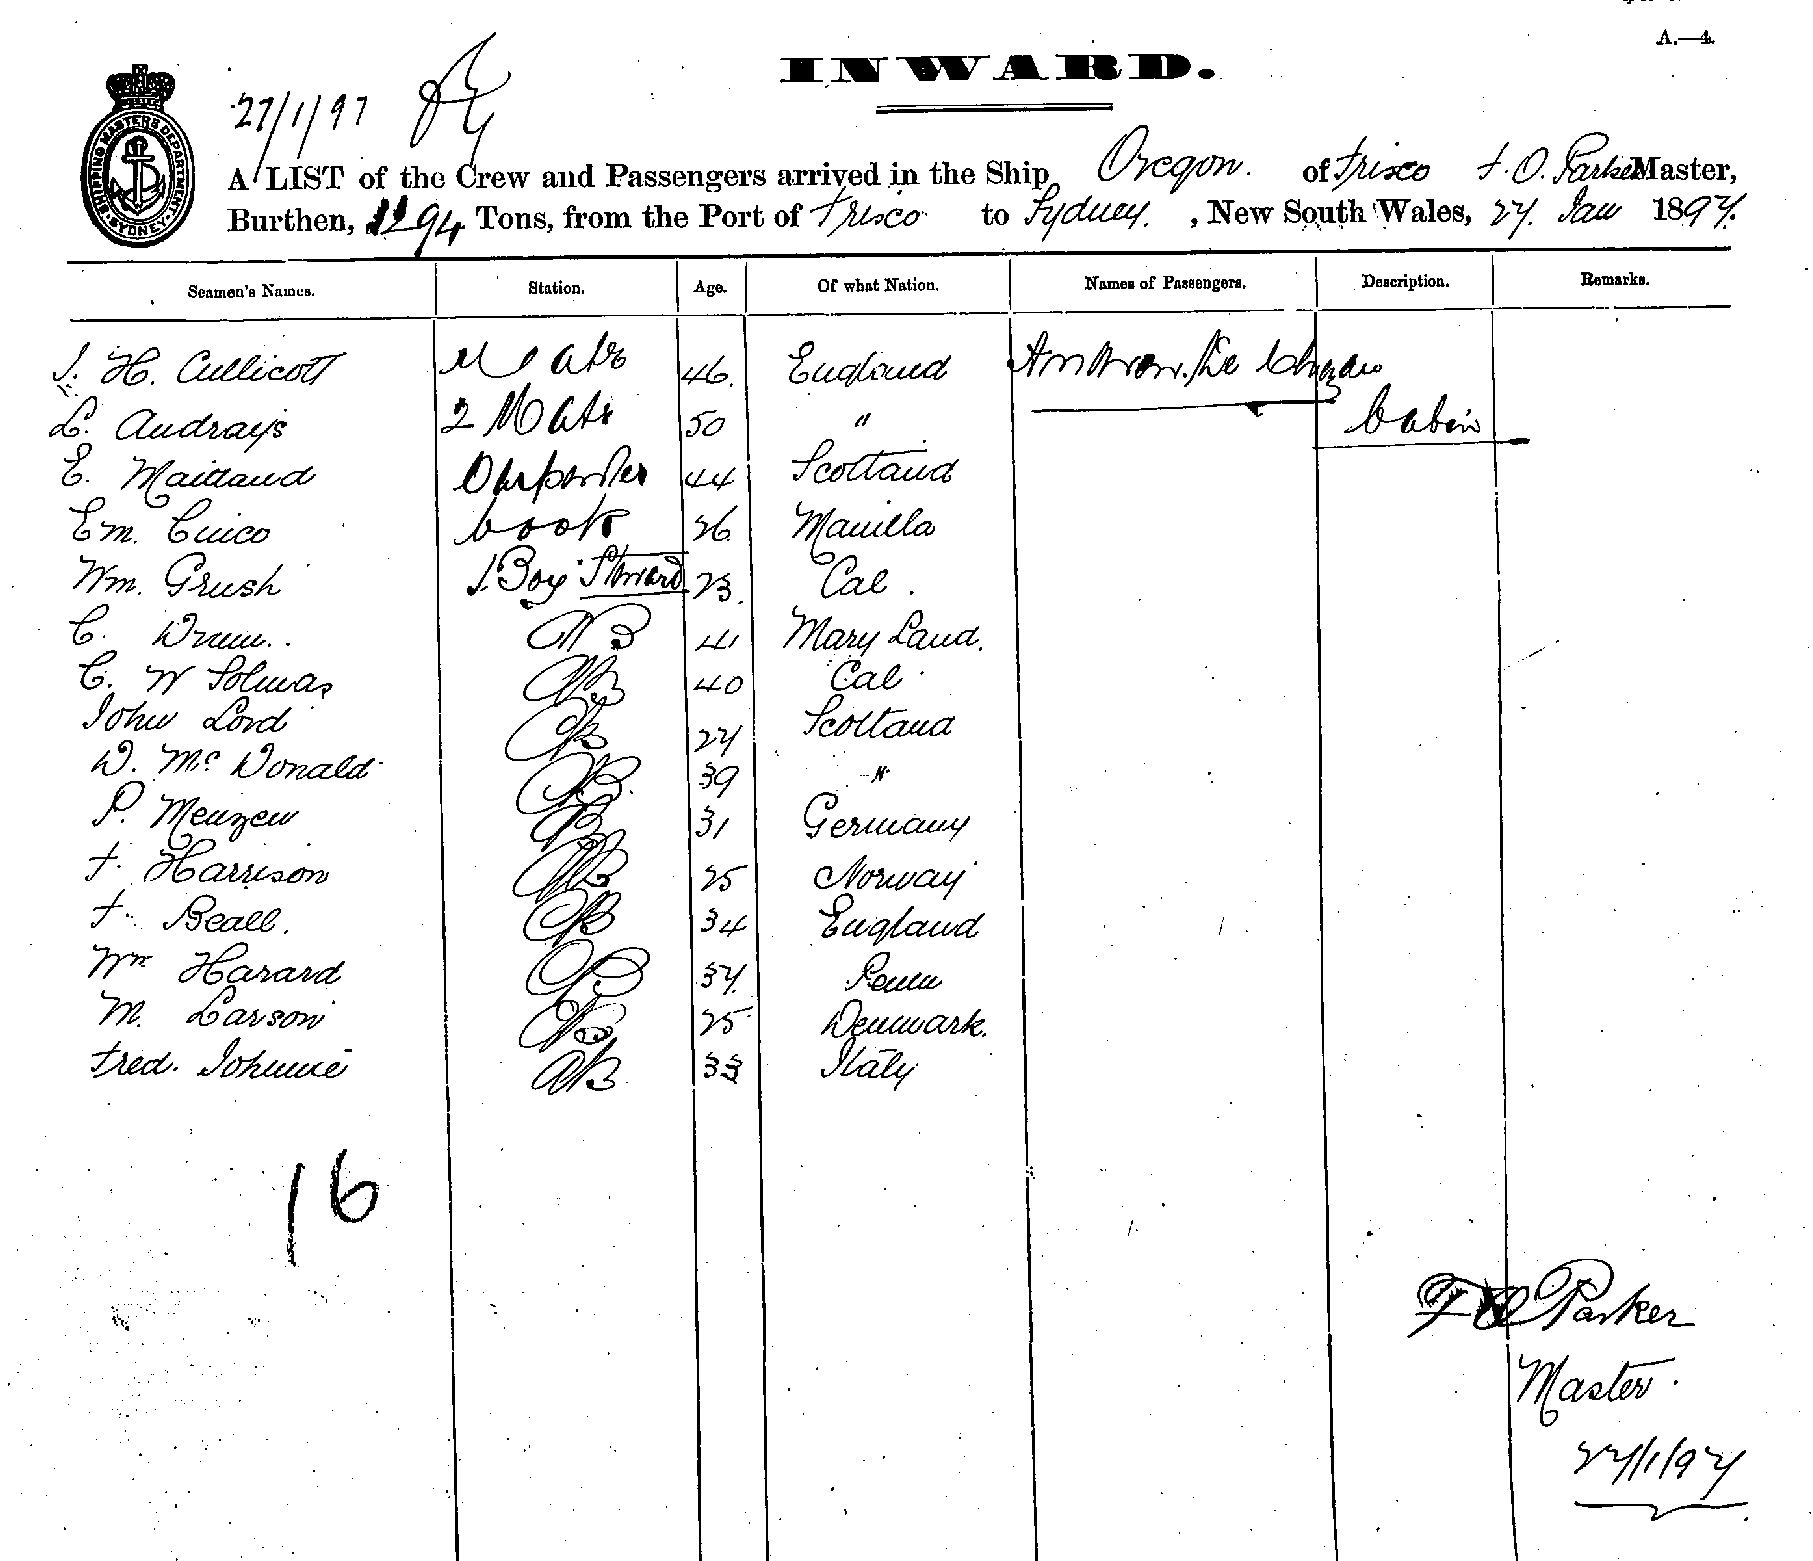 A.—4.
INWARD.
27/1/97
SHIPPING MASTERS DEPARTMENT SYDNEY
A LIST of the Crew and Passengers arrived in the Ship Oregon. of Frisco F. O. Parker Master,
Burthen, 1194 Tons, from the Port of Frisco to Sydney. , New South Wales, 27. Jan 1897.
Seamen's Names. Station. Age. Of what Nation. Names of Passengers. Description. Remarks.
J. H. Cullicott Mate 46. England
L. Audrays 2 Mate 50 " Cabin
E. Maitland Carpenter 44 Scotland
Em. Cinco Cook 26 Manilla
Wm. Grush 1 Boy Steward 23. Cal.
C. Drum.. AB 41 Mary Land.
C. W Solmas AB 40 Cal.
John Lord AB 27 Scotland
D. McDonald AB 39 "
P. Menzen AB 31 Germany
F. Harrison AB 25 Norway
F. Beall. AB 34 England
Wm Harard 37. Penn
M. Larson AB 25 Denmark.
Fred. Johnnie AB 33 Italy
16
F O Parker
Master.
27/1/97